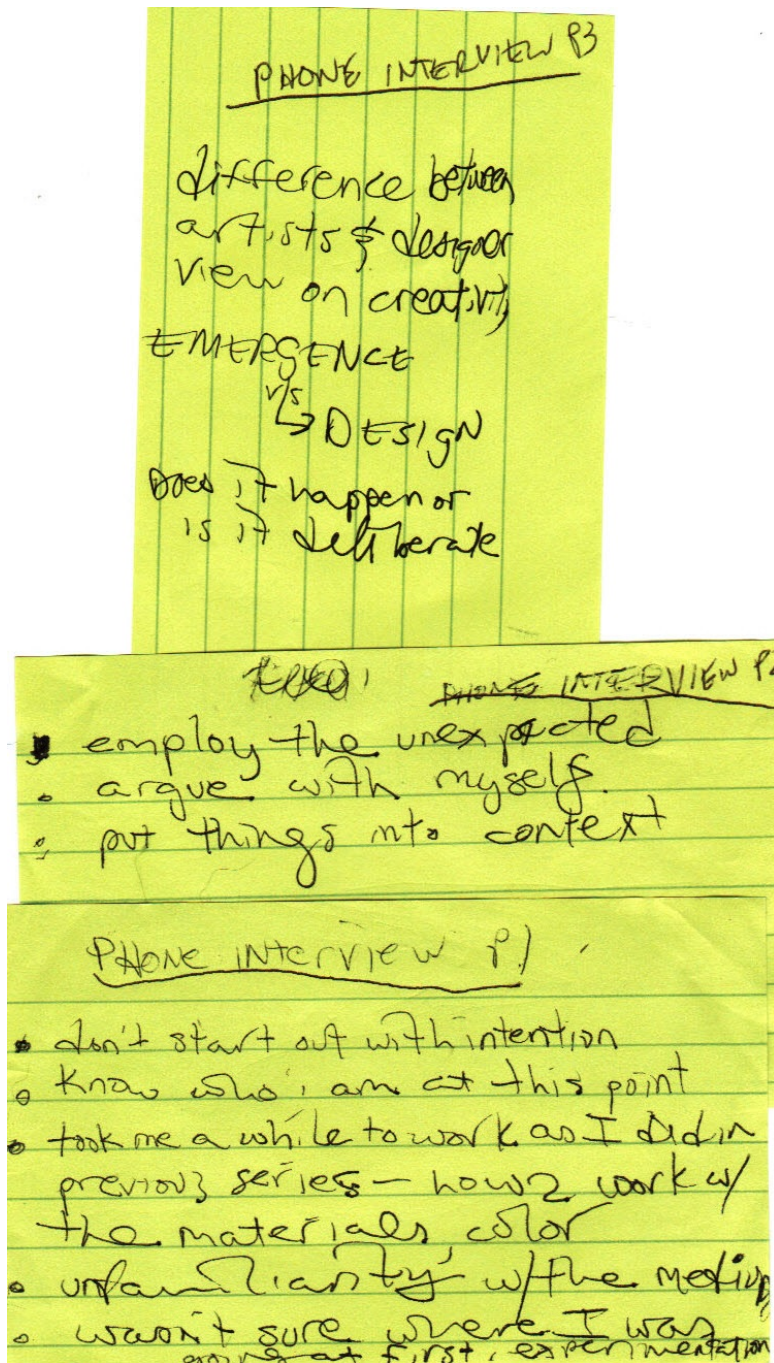 PHONE INTERVIEW P3
difference between
artists & designer
view on creativity
EMERGENCE
v/s
DESIGN
Does it happen or
is it deliberate
PHONE INTERVIEW P2
employ the unexpected
argue with myself.
put things into context
PHONE INTERVIEW P.1
don't start out with intention
know who i am at this point
took me a while to work as I did in
previous series - how 2 work w/
the materials, color
unfamiliarity w/the medium
wasn't sure where I was
going at first, experimentation